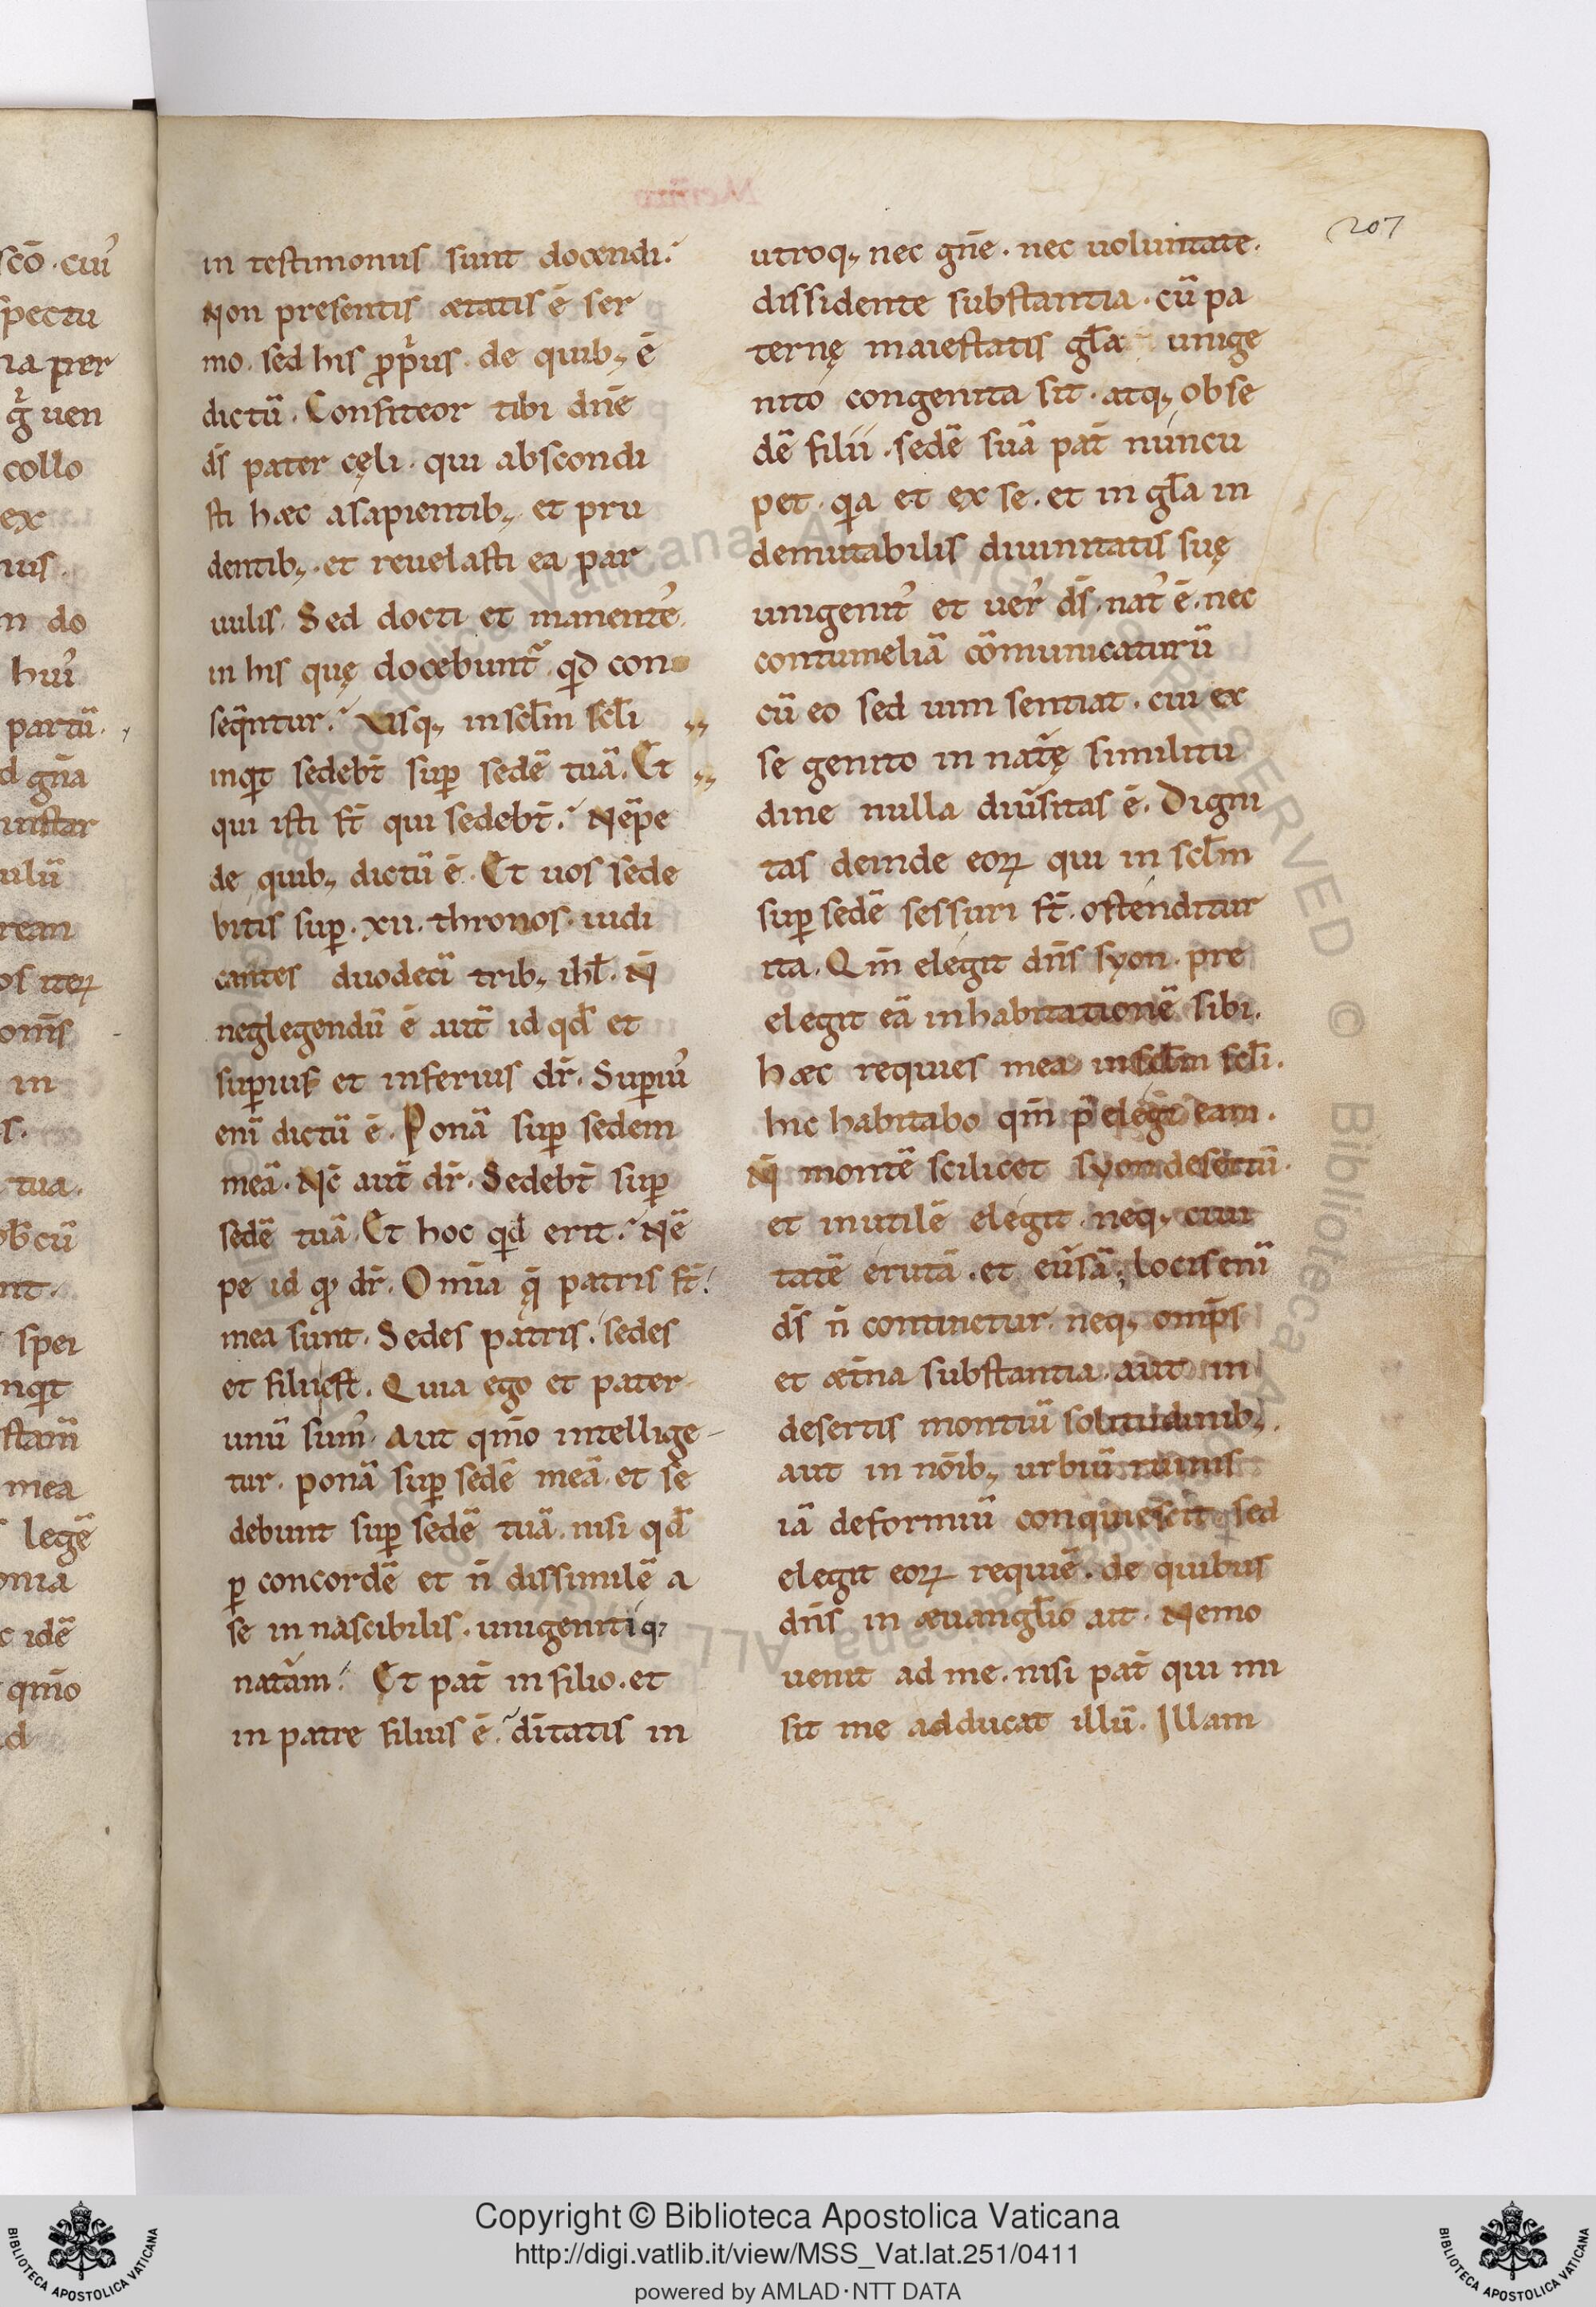 207
in testimoniis sunt docendi.
Non presentis ætatis ē ser
mo. sed his ꝓpͥus de quib; ē
dictū. Confiteor tibi dn̄e
dš pater cęli. qui abscondi
sti hæc a sapientib; et pru
dentib;. et reuelasti ea par
uulis. Sed docti et manente᾽.
in his quę docebunt᷑ qͥd con
seqn̄tur. Usq; in scl̄m scl̄i
inqͥt sedebt̄ suꝑ sedē tuā. Et
qui isti st̄ qui sedebt̄. Nēpe
de quib; dictū ē. Et uos sede
bitis suꝑ. xii. thronos. iudi
cantes duodecī trib; ihl̄. N̄
neglegendū ē aut̄ id qd̄ et
suꝑius et inferius dr̄. Suꝑiu᾽
enī dictū ē. Ponā suꝑ sedem
meā. Nc̄ aut̄ dr̄. Sedebt̄ suꝑ
sedē tuā. Et hoc qͥd erit. Nē
pe id qͦ dr̄. Om̄ia q̄ patris st̄.
mea sunt. Sedes patris. sedes
et filii est. Quia ego et pater
unū sum᾽. Aut qm̄o intellige
tur. ponā suꝑ sedē meā. et se
debunt suꝑ sedē tuā. nisi qd̄
ꝑ concordē et n̄ dissimilē a
se innascibilis. unigenitiq;
nat᷑am. Et pat̄ in filio. et
in patre filius ē. dītatis in
utroq; nec gn̄e. nec uoluntate.
dissidente substantia. cū pa
ternę maiestatis gl̄a unige
nito congenita sit. atq; ob se
dē filii. sedē suā pat̄ nuncu
pet. qͥa et ex se. et in gl̄a in
demutabilis diuinitatis suę
unigenit᾽ et uer᾽ dš. nat᾽ ē. nec
contumeliā cōmunicaturū
cū eo sed uim sentiat. cui ex
se genito in nat᷑ę similitu
dine nulla diūsitas ē. Digni
tas deinde eoꝝ qui in scl̄m
suꝑ sedē sessuri st̄. ostenditur
ita. Qm̄ elegit dn̄s syon. pre
elegit eā in habitationē sibi.
hæc requies mea in scl̄m scl̄i.
hic habitabo qm̄ p̄elegi eam.
N̄ montē scilicet syon desertū.
et inutilē elegit. neq; ciui
tatē erutā. et eūsā; locis enī
dš n̄ continetur. neq; omīps
et æt̄na substantia. aut in
desertis montiū solitudinib;.
aut in nōib; urbiū ruinis
iā deformiū conquiescit. sed
elegit eoꝝ requiē. de quibus
dn̄s in æuangl̄io ait. Nemo
uenit ad me. nisi pat̄ qui mi
sit me adducat illū. Illam
Copyright © Biblioteca Apostolica Vaticana
http://digi.vatlib.it/view/MSS_Vat.lat.251/0411
powered by AMLAD·NTT DATA